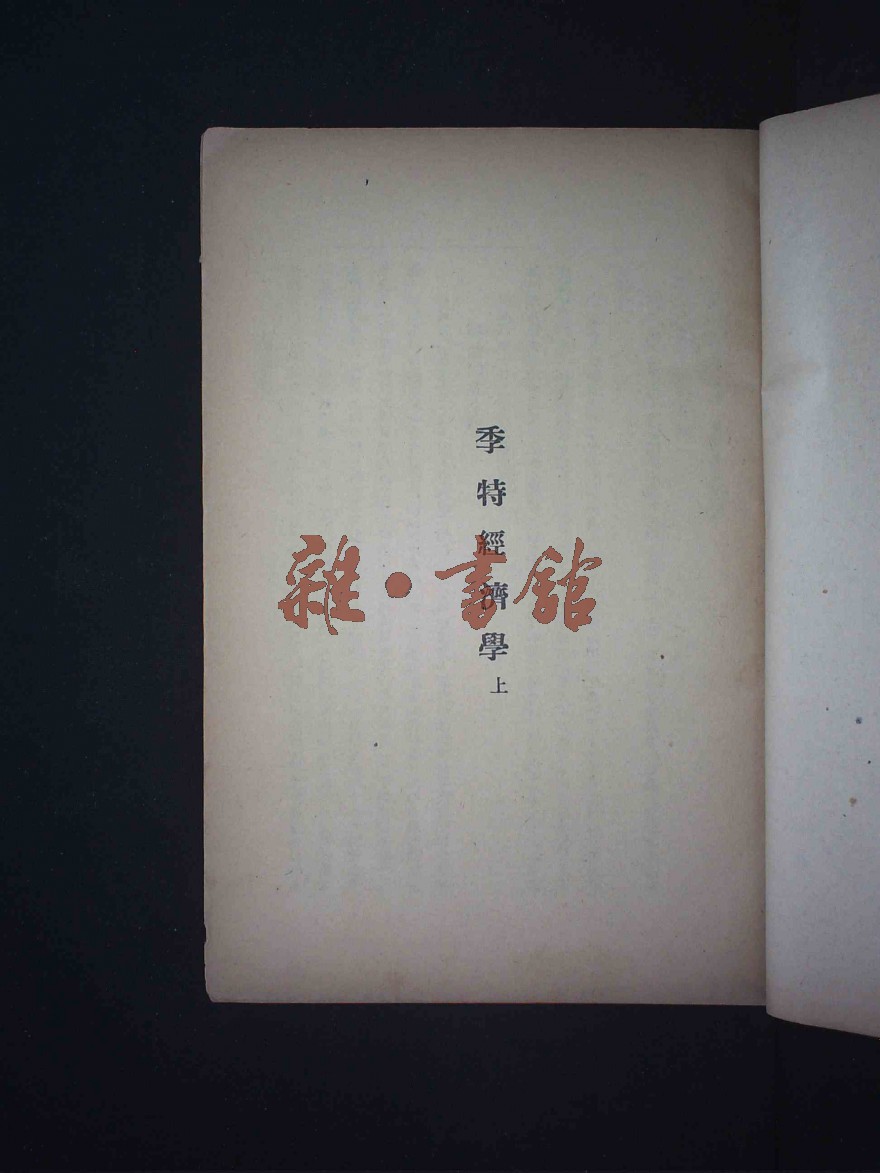 季特經濟學
上
雜·書館